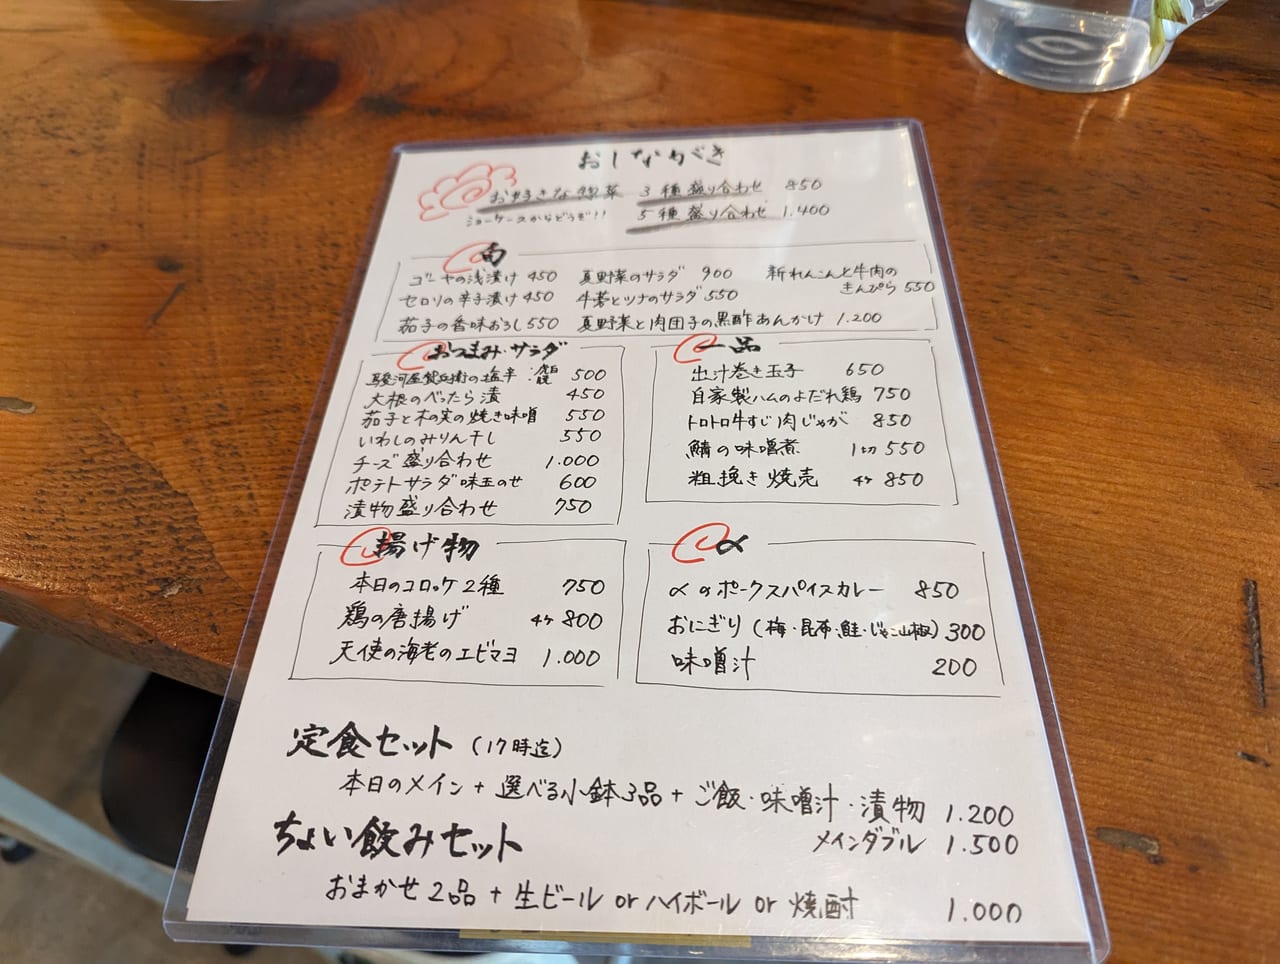 おしながき
お好きな惣菜 3種盛り合わせ 850
ショーケースからどうぞ!! 5種盛り合わせ 1.400
旬
ゴーヤの浅漬け 450 夏野菜のサラダ 900 新れんこんと牛肉の
きんぴら 550
セロリの辛子漬け 450 牛蒡とツナのサラダ 550
茄子の香味おろし 550 夏野菜と肉団子の黒酢あんかけ 1.200
おつまみ・サラダ
駿河屋賀兵衛の塩辛 500
大根のべったら漬 450
茄子と木の実の焼き味噌 550
いわしのみりん干し 550
チーズ盛り合わせ 1.000
ポテトサラダ味玉のせ 600
漬物盛り合わせ 750
一品
出汁巻き玉子 650
自家製ハムのよだれ鶏 750
トロトロ牛すじ肉じゃが 850
鯖の味噌煮 1切 550
粗挽き焼売 4ケ 850
揚げ物
本日のコロッケ2種 750
鶏の唐揚げ 4ケ 800
天使の海老のエビマヨ 1.000
〆
〆のポークスパイスカレー 850
おにぎり(梅・昆布・鮭・じゃこ山椒) 300
味噌汁 200
定食セット(17時迄)
本日のメイン+選べる小鉢3品+ご飯・味噌汁・漬物 1.200
メインダブル 1.500
ちょい飲みセット
おまかせ2品+生ビール or ハイボール or 焼酎 1.000